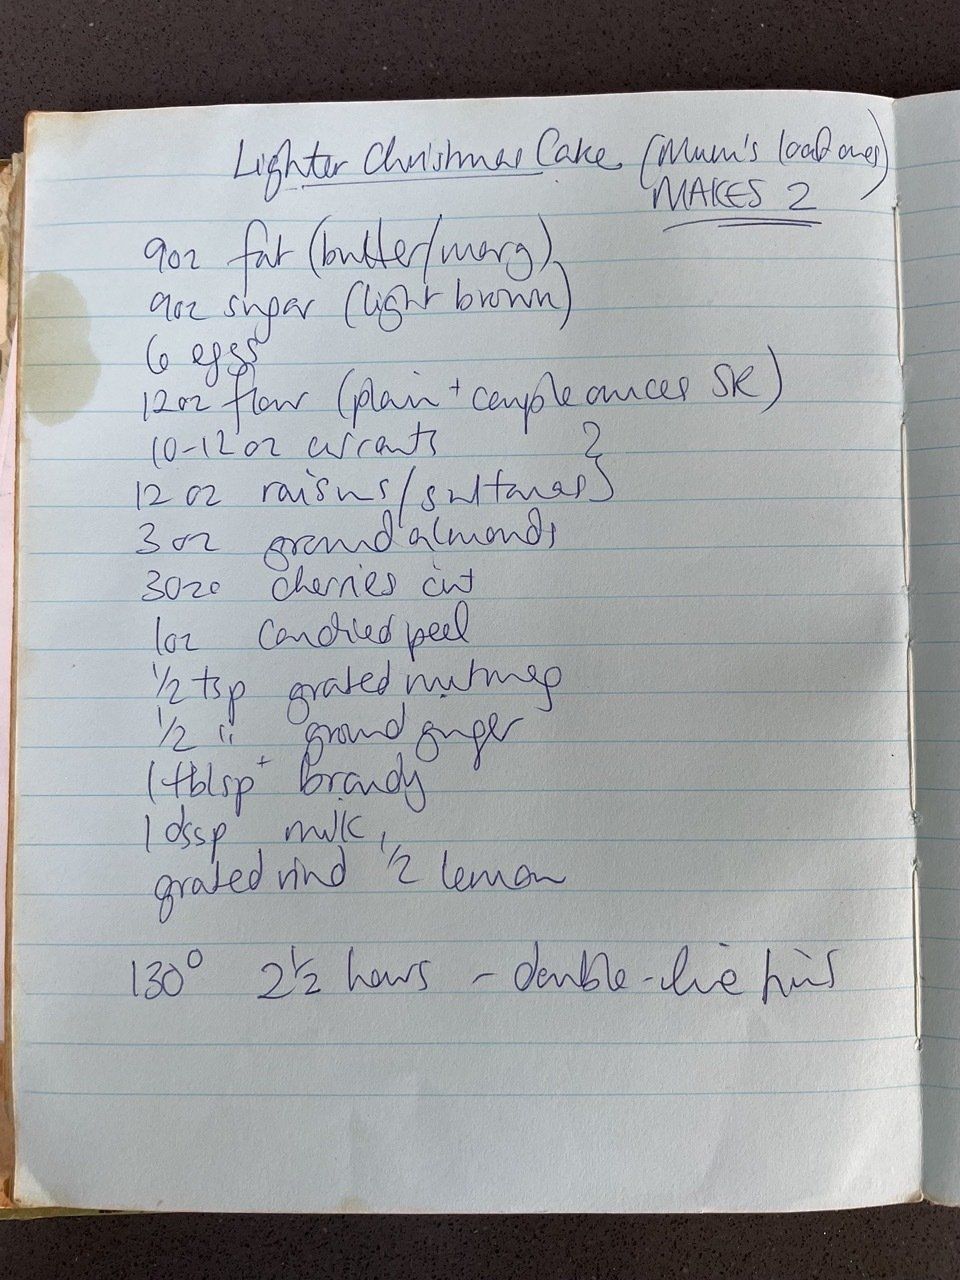 Lighter Christmas Cake (Mum's loaf ones)
MAKES 2
9oz fat (butter/marg)
9oz sugar (light brown)
6 eggs
12oz flour (plain + couple ounces SR)
10-12 oz currants
12 oz raisins/sultanas }
3 oz ground almonds
3ozs cherries cut
1oz candied peel
1/2 tsp grated nutmeg
1/2 " ground ginger
1 tblsp+ brandy
1 dssp milk
grated rind 1/2 lemon
130° 2 1/2 hours - double-line tins